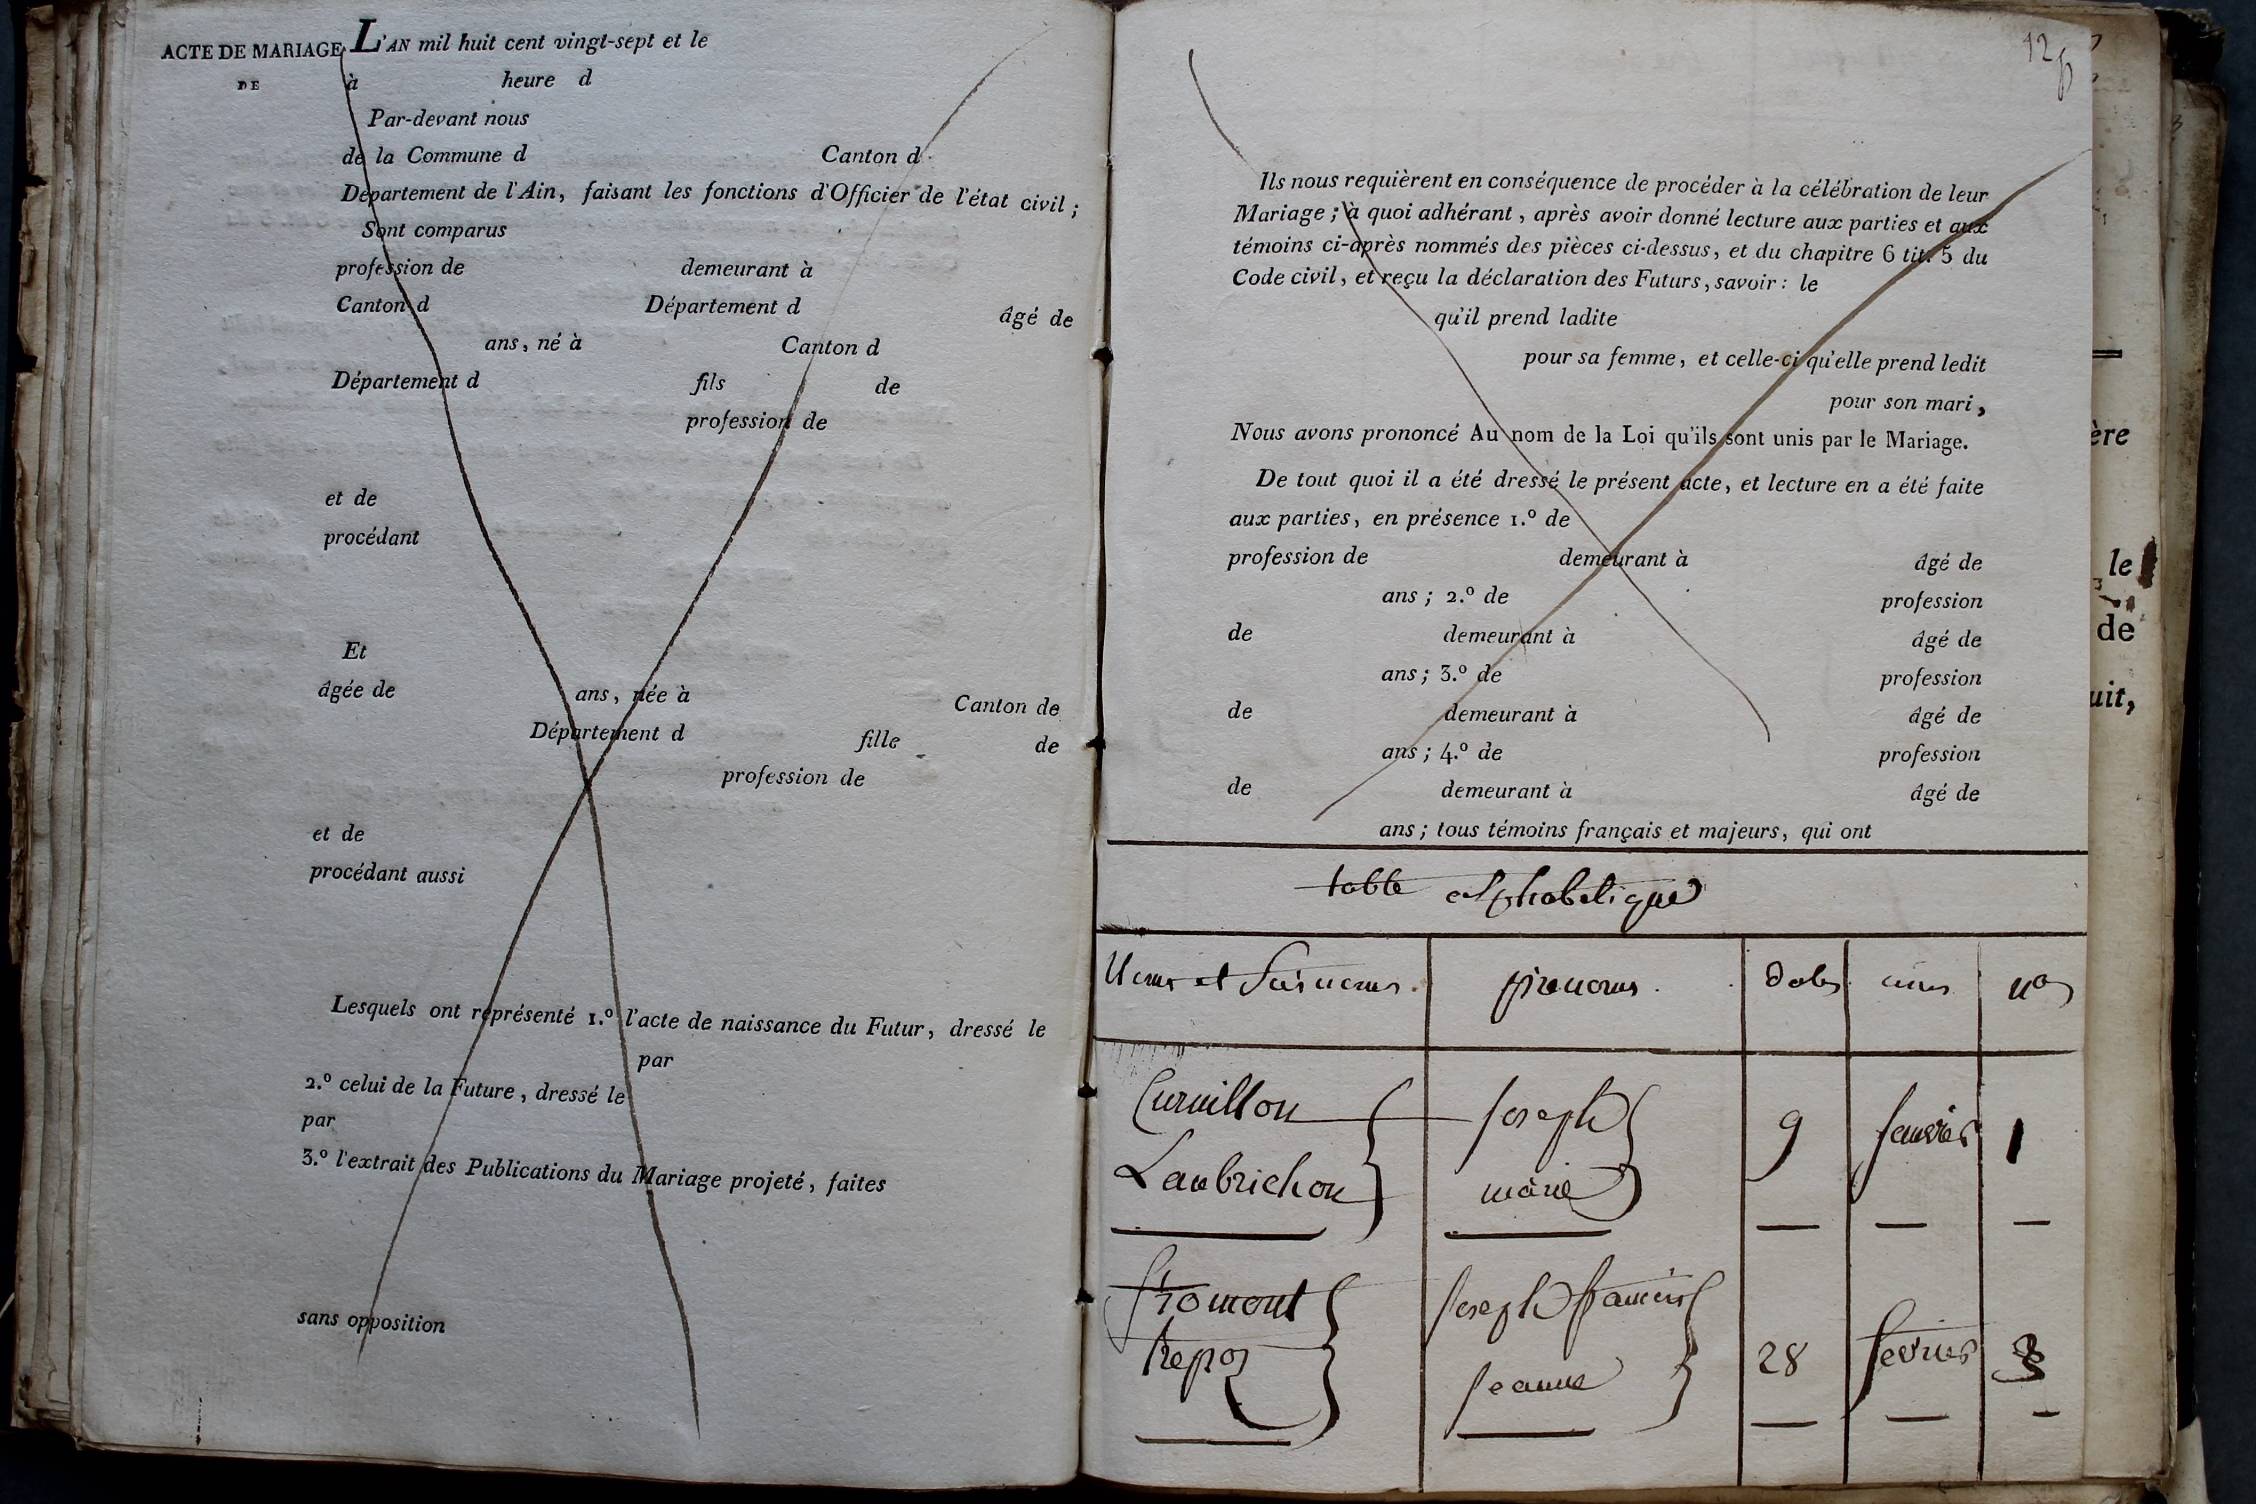 ACTE DE MARIAGE L'AN mil huit cent vingt-sept et le
DE à heure d
Par-devant nous
de la Commune d Canton d
Département de l'Ain, faisant les fonctions d'Officier de l'état civil ;
Sont comparus
profession de demeurant à
Canton d Département d âgé de
ans, né à Canton d
Département d fils de
profession de
et de
procédant
Et
âgée de ans, née à Canton de
Département d fille de
profession de
et de
procédant aussi
Lesquels ont représenté 1.º l'acte de naissance du Futur, dressé le
par
2.º celui de la Future, dressé le
par
3.º l'extrait des Publications du Mariage projeté, faites
sans opposition
12
Ils nous requièrent en conséquence de procéder à la célébration de leur
Mariage ; à quoi adhérant, après avoir donné lecture aux parties et aux
témoins ci-après nommés des pièces ci-dessus, et du chapitre 6 tit. 5 du
Code civil, et reçu la déclaration des Futurs, savoir : le
qu'il prend ladite
pour sa femme, et celle-ci qu'elle prend ledit
pour son mari,
Nous avons prononcé Au nom de la Loi qu'ils sont unis par le Mariage.
De tout quoi il a été dressé le présent acte, et lecture en a été faite
aux parties, en présence 1.º de
profession de demeurant à âgé de
ans ; 2.º de profession
de demeurant à âgé de
ans ; 3.º de profession
de demeurant à âgé de
ans ; 4.º de profession
de demeurant à âgé de
ans ; tous témoins français et majeurs, qui ont
table alphabetique
Noms et Surnoms. prenoms. dates nos
Curvillon Joseph
9 janvier 1
Laubrichon marie
fromont Joseph francois
28 fevrier 3
trepoz
Jeanne
ère
le
de
uit,